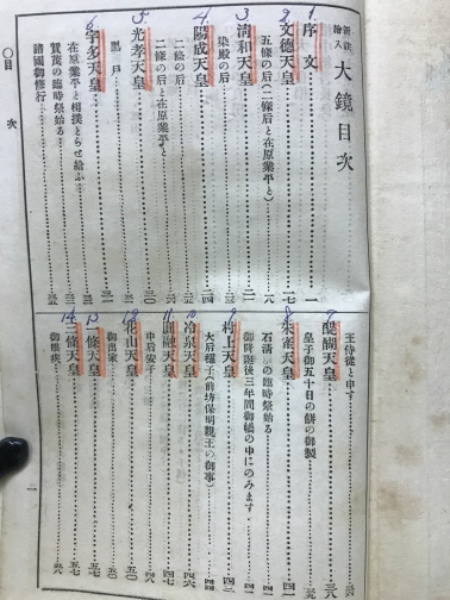 新註繪入 大鏡目次
1. 序文 一
2. 文德天皇 一七
五條の后(二條后と在原業平と) 一八
3. 淸和天皇 二一
染殿の后
4. 陽成天皇 二四
二條の后
二條の后と在原業平と
5. 光孝天皇 三〇
黑戶
6. 宇多天皇
在原業平と相撲とらせ給ふ
賀茂の臨時祭始る
諸國御修行 三五
王侍從と申す 三六
7. 醍醐天皇 三八
皇子御五十日の餅の御製 三九
8. 朱雀天皇 四一
石淸水の臨時祭始る 四一
御降誕後三年間御帳の中にのみます 四二
9 村上天皇 四三
大后穩子(前坊保明親王の御事) 四四
10. 冷泉天皇 四六
11. 圓融天皇 四七
中后安子 四八
12 花山天皇 五〇
御出家 五〇
13 一條天皇 五七
14. 三條天皇 五七
御眼疾 五八
〇目次
一